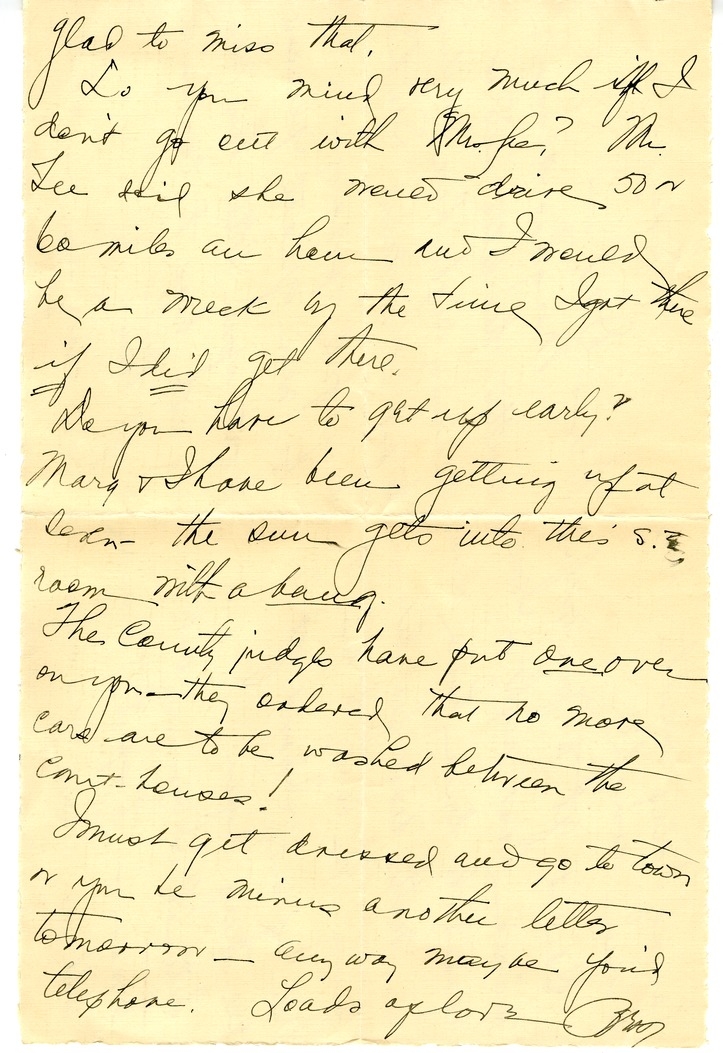 glad to miss that.
Do you mind very much if I
don't go out with Mrs. Gee? Mr.
Gee said she would drive 50 or
60 miles an hour and I would
be a wreck by the time I got there
if I did get there.
Do you have to get up early?
Mary & I have been getting up at
seven - the sun gets into this S.E.
room with a bang.
The County judges have put one over
on you - they ordered that no more
cars are to be washed between the
court-houses!
I must get dressed and go to town
or you be minus another letter
tomorrow - any way maybe you'd
telephone. Loads of love